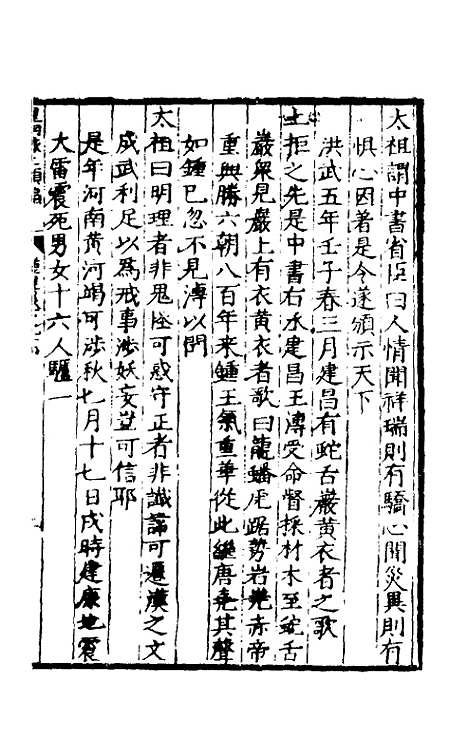 太祖謂中書省臣曰人情聞祥瑞則有驕心聞災異則有
惧心因著是令遂頒示天下
洪武五年壬子春三月建昌有蛇舌巖黄衣者之歌
上拒之先是中書右丞建昌王溥受命督採材木至蛇舌
巖衆見巖上有衣黄衣者歌曰龍蟠虎踞勢岩嶤赤帝
重興勝六朝八百年来鍾王氣重華從此継唐堯其聲
如鍾已忽不見溥以問
太祖曰明理者非鬼怪可惑守正者非讖諱可遷漢之文
成武利足以為戒事渉妖妄豈可信耶
是年河南黄河竭可渉秋七月十七日戌時建康地震
大雷震死男女十六人驢一